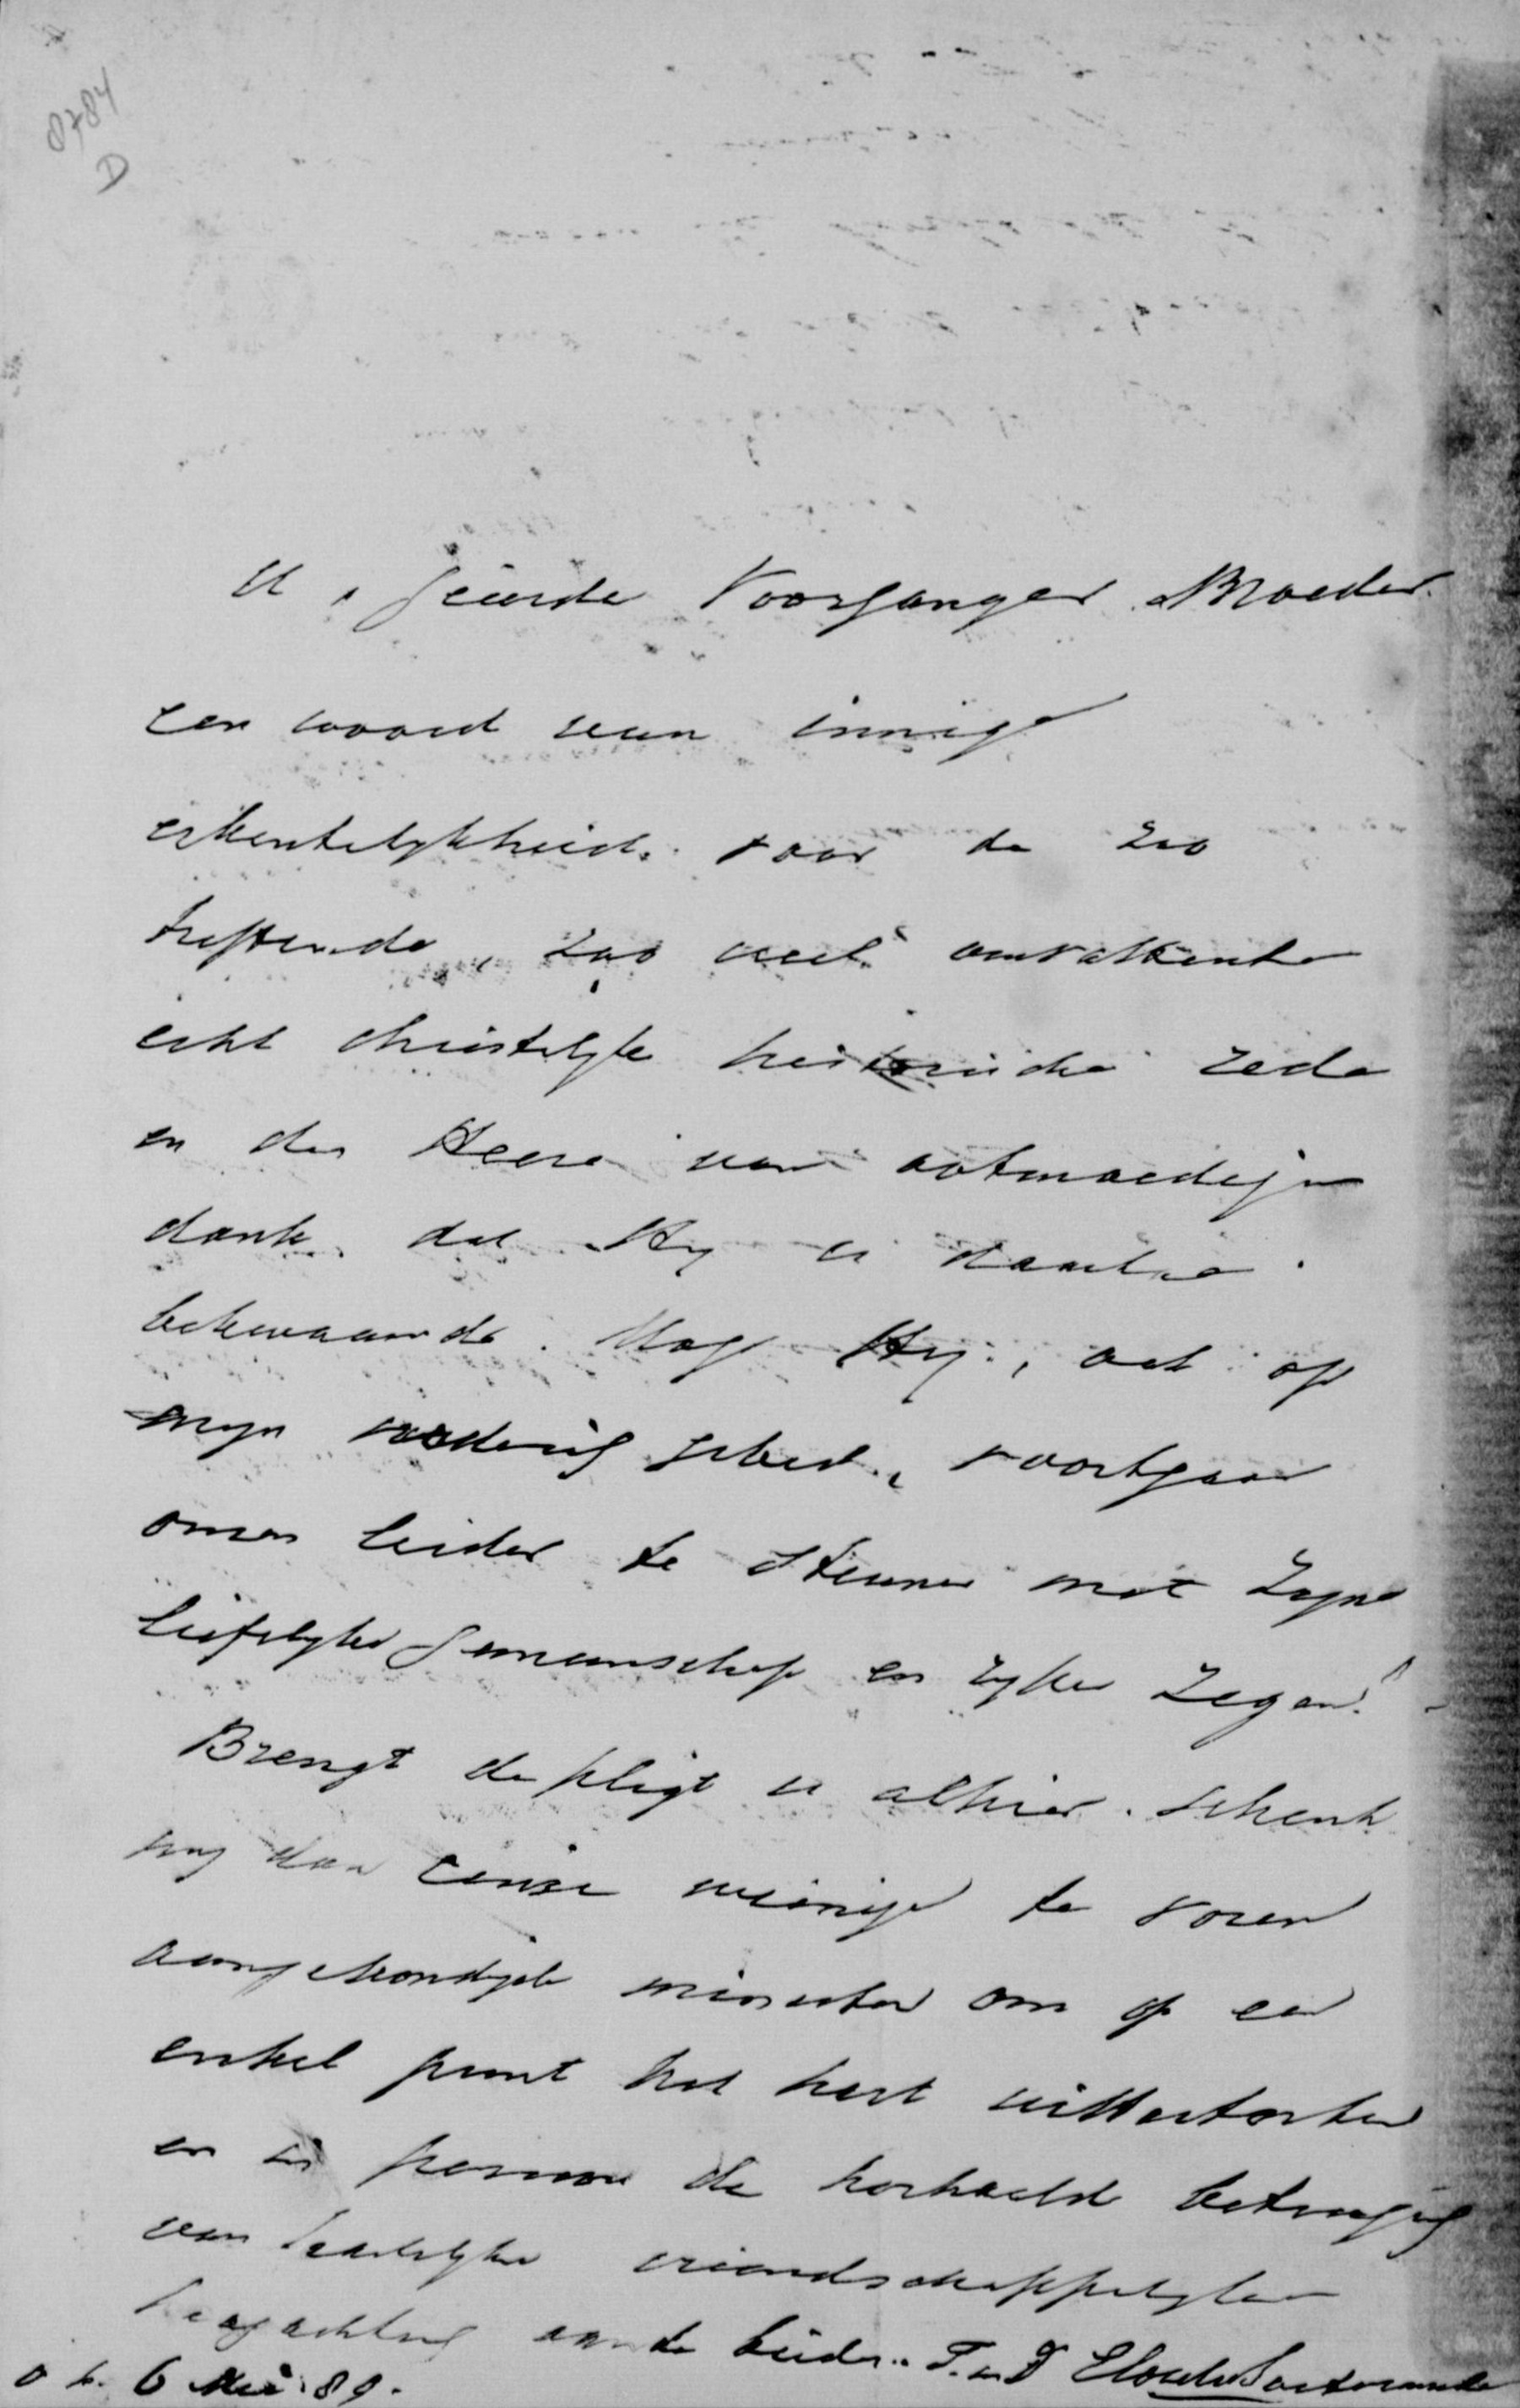 8784
D
U, geëerde Voorganger Broeder
een woord van innige
erkentelykheid voor de zoo
treffende, zoo veel omvattende
echt christelyke historische rede
en den Heere van ootmoedigen
dank dat Hy U daartoe
bekwaamde. Moge Hy, ook op
myn nederig gebed, voortgaan
onzen leider te steunen met Zyne
liefelyke gemeenschap en ryken Zegen!
Brengt de pligt U alhier. Schenk
my dan eenige weinige te voren
aangekondigde minuten om op een
enkel punt het hart uittestorten
en in persoon de herhaalde betuiging
van hartelyke vriendschappelyke
hoogachting aan te bieden. T. à T. Elout v Soeterwoude
6 Mei 89.